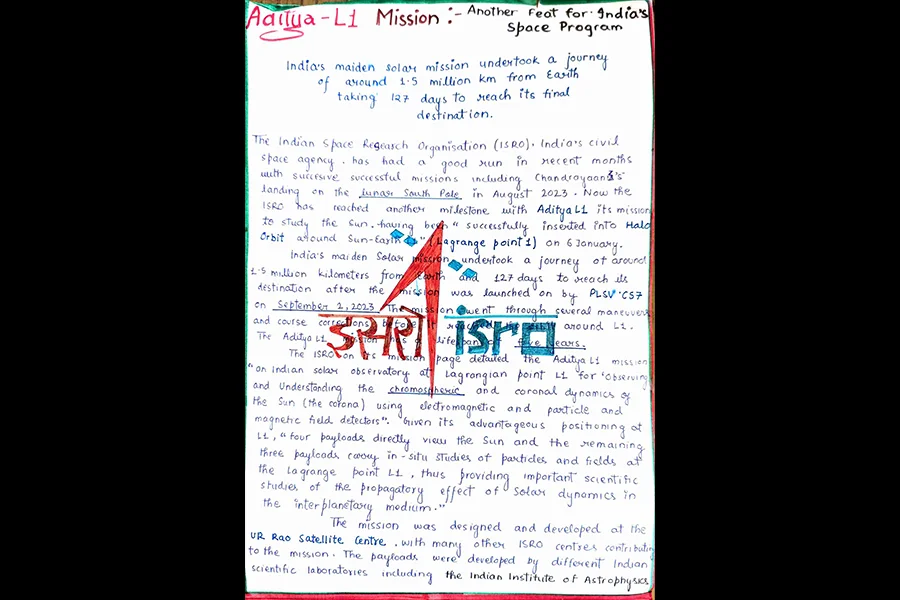 Aditya-L1 Mission :- Another Feat for India's
Space Program
India's maiden solar mission undertook a journey
of around 1.5 million km from Earth
taking 127 days to reach its final
destination.
The Indian Space Research Organisation (ISRO). India's civil
space agency. has had a good run in recent months
with succesive successful missions including Chandrayaan3's
landing on the lunar South Pole in August 2023. Now the
ISRO has reached another milestone with Aditya L1 its mission
to study the Sun. having been "successfully inserted into Halo
Orbit around Sun-Earth (Lagrange point 1) on 6 January.
India's maiden Solar mission undertook a journey of around
1.5 million kilometers from Earth and 127 days to reach its
destination after the mission was launched on by PLSV-C57
on September 2, 2023. The mission went through several maneuvers
and course corrections before it reached the around L1.
The Aditya L1 mission has a lifespan of five years.
इसरो isro
The ISRO on its mission page detailed the Aditya L1 mission
"an Indian solar observatory at Lagrangian point L1 for "Observing
and Understanding the chromospheric and coronal dynamics of
the Sun (the corona) using electromagnetic and particle and
magnetic field detectors". "Given its advantageous positioning at
L1, "four payloads directly view the Sun and the remaining
three payloads carry in-situ studies of particles and fields at
the Lagrange point L1, thus providing important scientific
studies of the propagatory effect of Solar dynamics in
the interplanetary medium."
The mission was designed and developed at the
UR Rao Satellite Centre, with many other ISRO centres contributing
to the mission. The payloads were developed by different Indian
scientific laboratories including the Indian Institute of Astrophysics